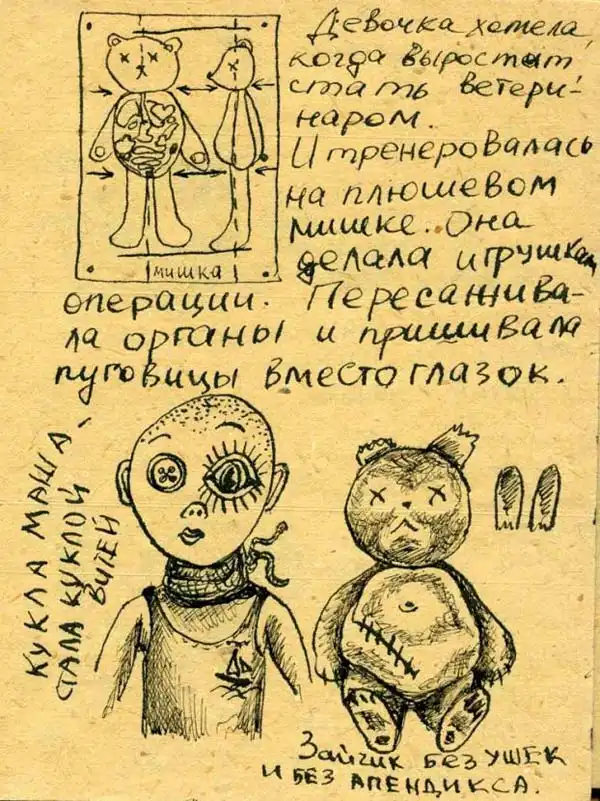 Девочка хотела,
когда выростит
стать ветери-
наром.
И тренеровалась
на плюшевом
мишке. Она
делала игрушкам
операции. Пересажива-
ла органы и пришивала
пуговицы вместо глазок.
мишка
КУКЛА МАША
СТАЛА КУКЛОЙ
ВИТЕЙ
Зайчик без ушек
и без апендикса.